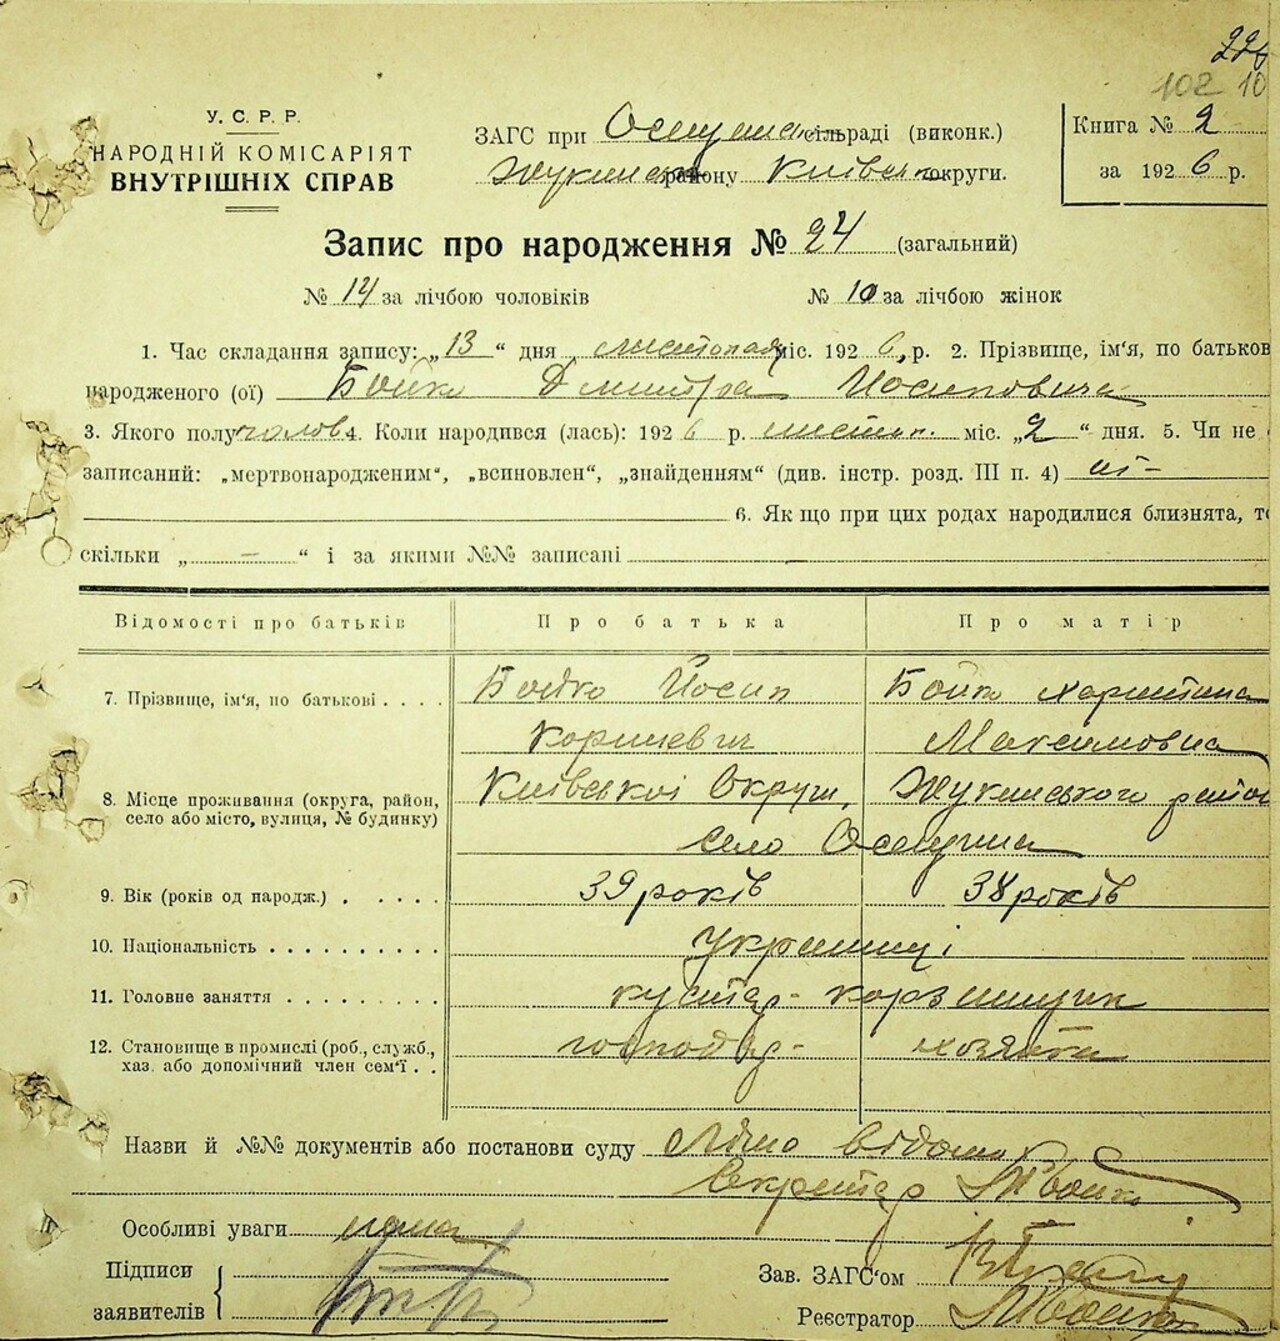 102 10
У. С. Р. Р.
НАРОДНІЙ КОМІСАРІЯТ
ВНУТРІШНІХ СПРАВ
ЗАГС при сільраді (виконк.)
району Київськ округи.
Книга № 2
за 1926 р.
Запис про народження № 24 (загальний)
№ 14 за лічбою чоловіків № 10 за лічбою жінок
1. Час складання запису: „13“ дня листопада міс. 1926, р. 2. Прізвище, ім'я, по батьков
народженого (ої) Бойко Дмитра Йосиповича
3. Якого полу чолов 4. Коли народився (лась): 1926 р. листоп. міс. „2“ дня. 5. Чи не
записаний: „мертвонародженим“, „всиновлен“, „знайденням“ (див. інстр. розд. III п. 4) ні-
6. Як що при цих родах народилися близнята, то
скільки „ - “ і за якими №№ записані
Відомості про батьків Про батька Про матір
7. Прізвище, ім'я, по батькові . . . . Бойко Йосип Бойко Харитина
Корнієвич Максимовна
8. Місце проживання (округа, район, Київської Округи, Жукинського район
село або місто, вулиця, № будинку)
село Осещина
9. Вік (років од народж.) . . . . . 39 років 38 років
10. Національність . . . . . . . . . . Українці
11. Головне заняття . . . . . . . . . кустар-корзинщик
12. Становище в промислі (роб., служб., господар- хозяйка
хаз. або допомічний член сем'ї . .
Назви й №№ документів або постанови суду Лічно відомий
Секретар Бойко
Особливі уваги нема
Підписи
заявителів
Зав. ЗАГС'ом
Реєстратор Бойко